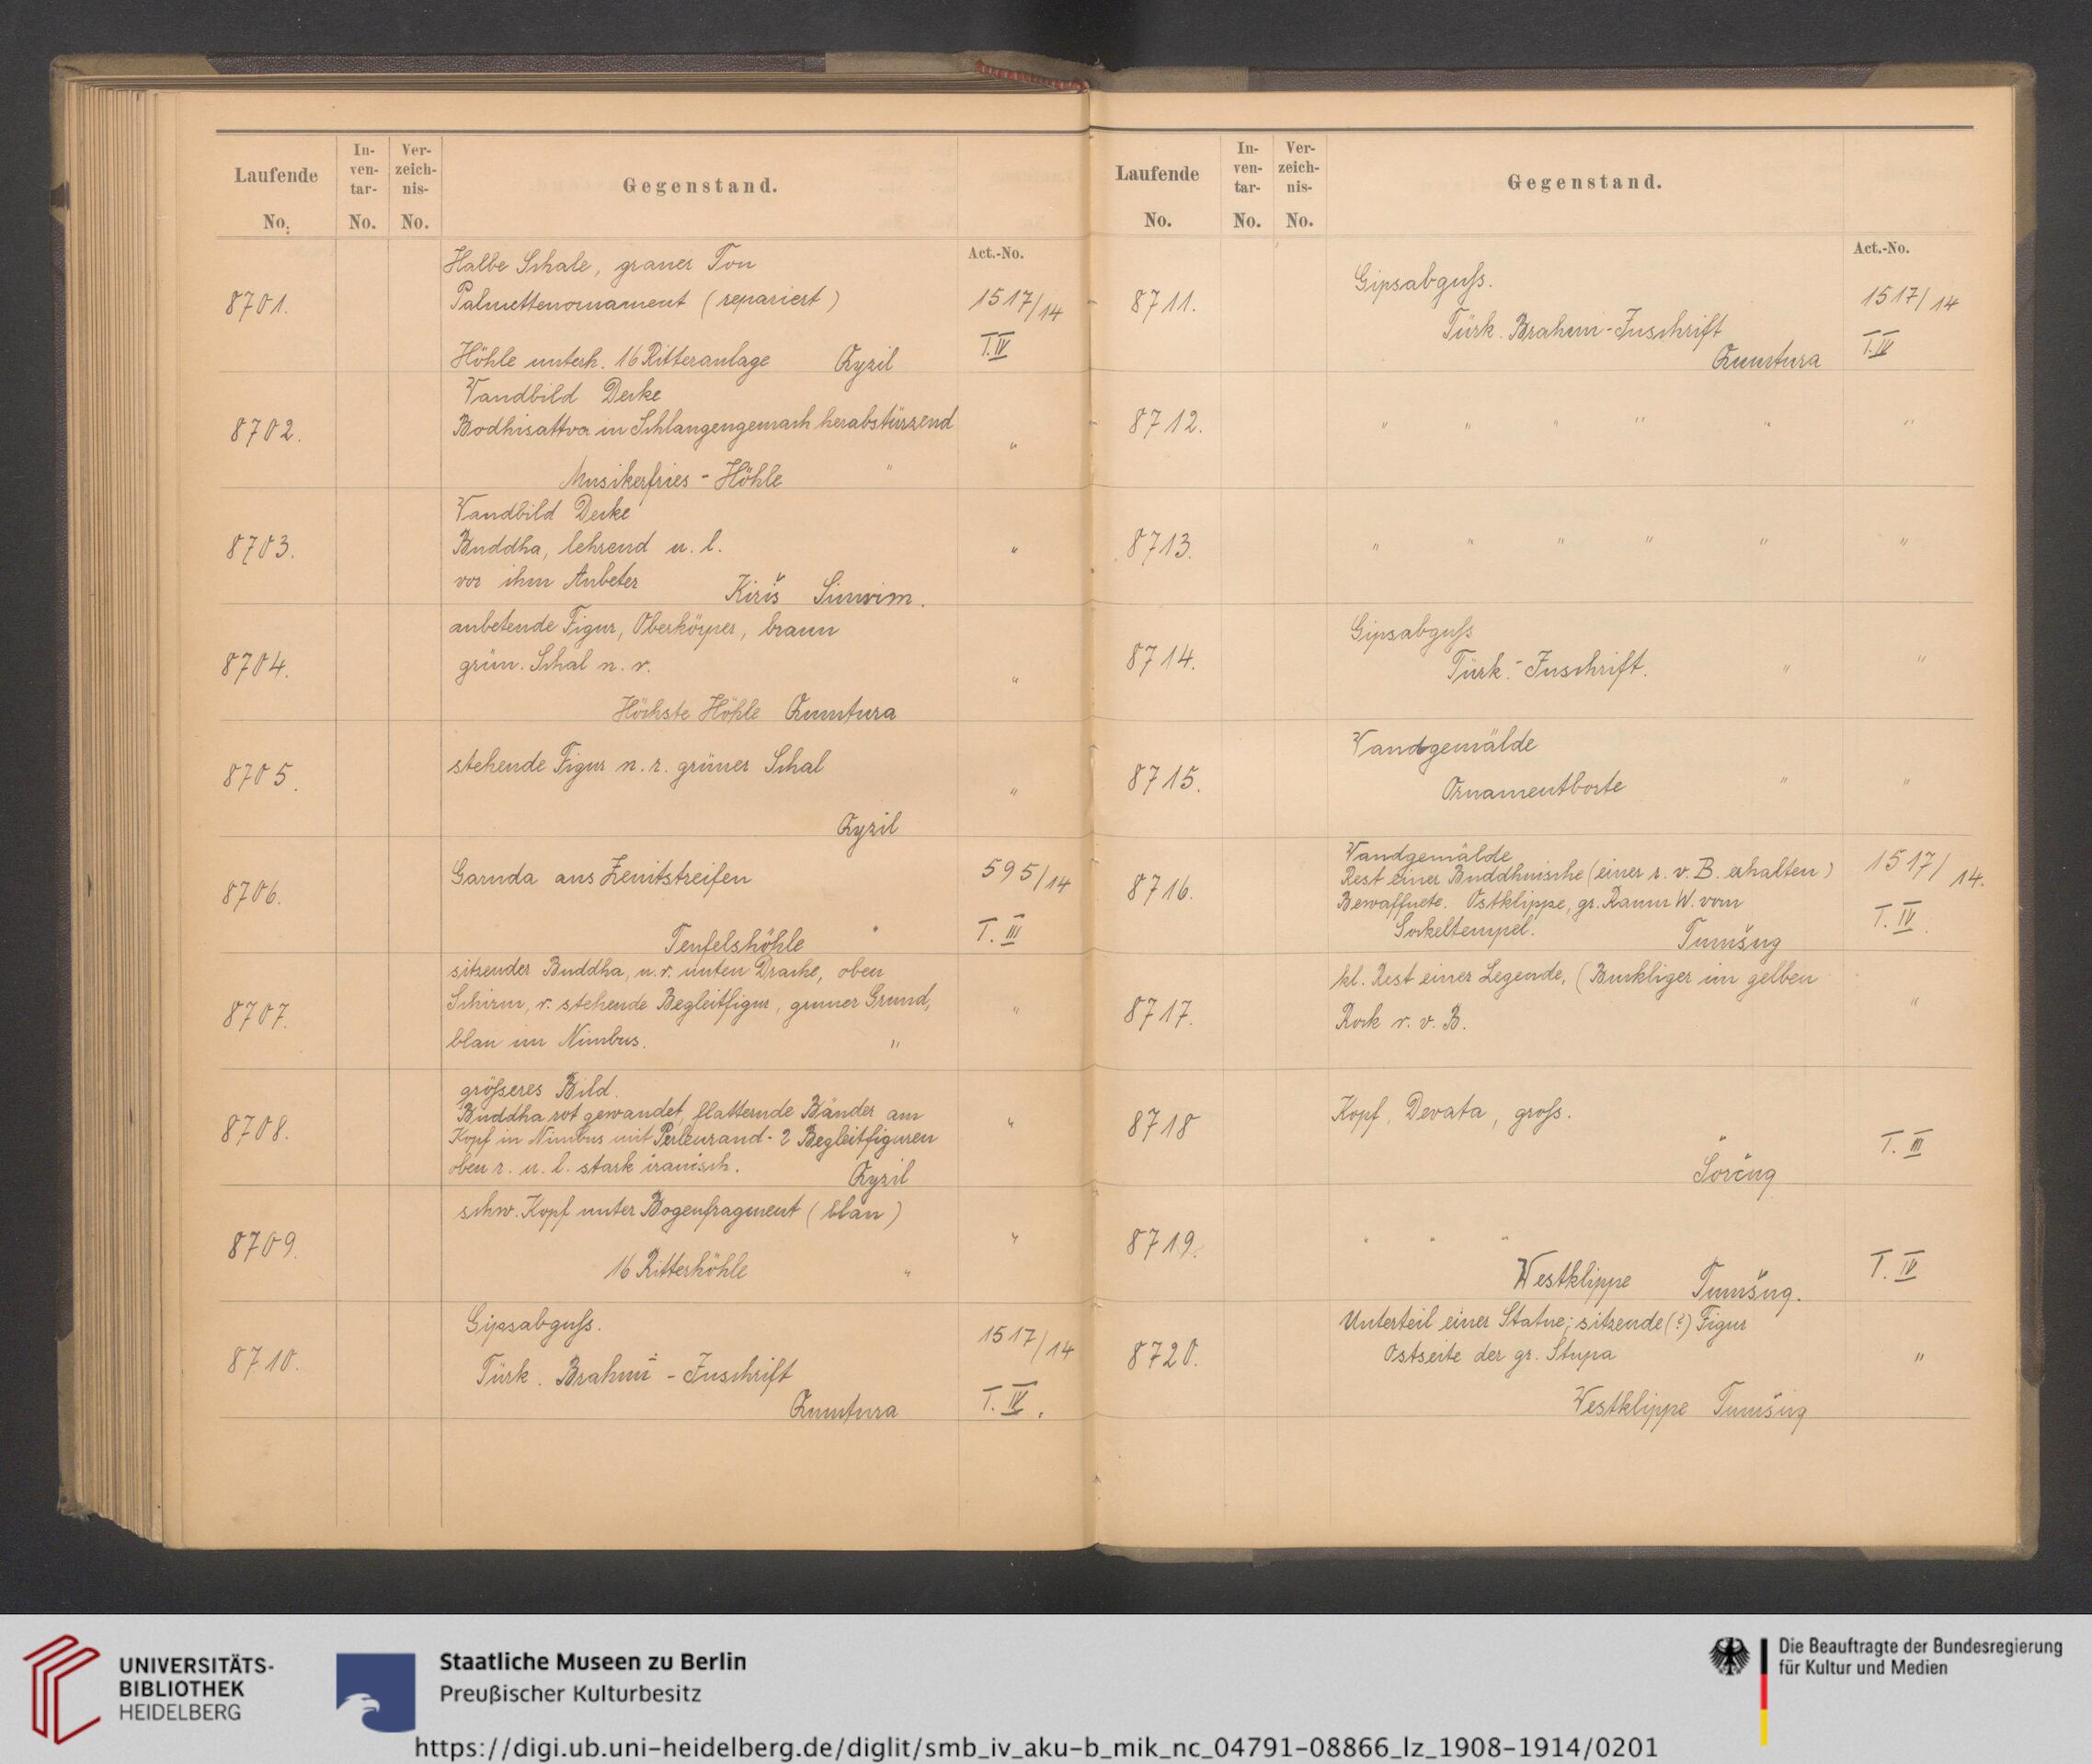 Laufende No.
In-ven-tar- No.
Ver-zeich-nis- No.
Gegenstand.
Act.-No.
8701.
Halbe Schale, grauer Ton
Palmettenornament (repariert)
1517/14
Höhle unterh. 16 Ritteranlage Qyzil
T. IV
8702.
Wandbild Decke
Bodhisattva in Schlangengemach herabstürzend
"
Musikerfries - Höhle "
8703.
Wandbild Decke
Buddha, lehrend n. l.
"
vor ihm Anbeter Kiriš Simsim.
8704.
anbetende Figur, Oberkörper, braun
grün. Schal n. r.
"
Höchste Höhle Qumtura
8705.
stehende Figur n. r. grüner Schal
"
Qyzil
8706.
Garuda aus Zenitstreifen
595/14
Teufelshöhle "
T. III
8707.
sitzender Buddha, n. r. unten Drache, oben
Schirm, r. stehende Begleitfigur, grüner Grund,
"
blau im Nimbus. "
8708.
größeres Bild.
Buddha rot gewandet, flatternde Bänder am
"
Kopf in Nimbus mit Perlenrand - 2 Begleitfiguren
oben r. u. l. stark iranisch. Qyzil
8709.
schw. Kopf unter Bogenfragment (blau)
"
16 Ritterhöhle "
8710.
Gipsabguß.
1517/14
Türk. Brahmi - Inschrift
Qumtura
T. IV.
Laufende No.
In-ven-tar- No.
Ver-zeich-nis- No.
Gegenstand.
Act.-No.
8711.
Gipsabguß.
1517/14
Türk. Brahmi-Inschrift
Qumtura
T. IV
8712.
" " " " " "
8713.
" " " " " "
8714.
Gipsabguß
Türk.- Inschrift. " "
8715.
Wandgemälde
Ornamentborte " "
8716.
Wandgemälde
Rest einer Buddhanische (einer r. v. B. erhalten)
1517/14.
Bewaffnete. Ostklippe, gr. Raum W. vom
Sockeltempel. Tumšuq
T. IV.
8717.
kl. Rest einer Legende, (Buckliger im gelben
"
Rock r. v. B.
8718
Kopf, Devata, groß.
T. III
Šorčuq
8719.
" " "
Westklippe Tumšuq.
T. IV
8720.
Unterteil einer Statue; sitzende (?) Figur
Ostseite der gr. Stupa
"
Westklippe Tumšuq
UNIVERSITÄTS-
BIBLIOTHEK
HEIDELBERG
Staatliche Museen zu Berlin
Preußischer Kulturbesitz
Die Beauftragte der Bundesregierung
für Kultur und Medien
https://digi.ub.uni-heidelberg.de/diglit/smb_iv_aku-b_mik_nc_04791-08866_lz_1908-1914/0201